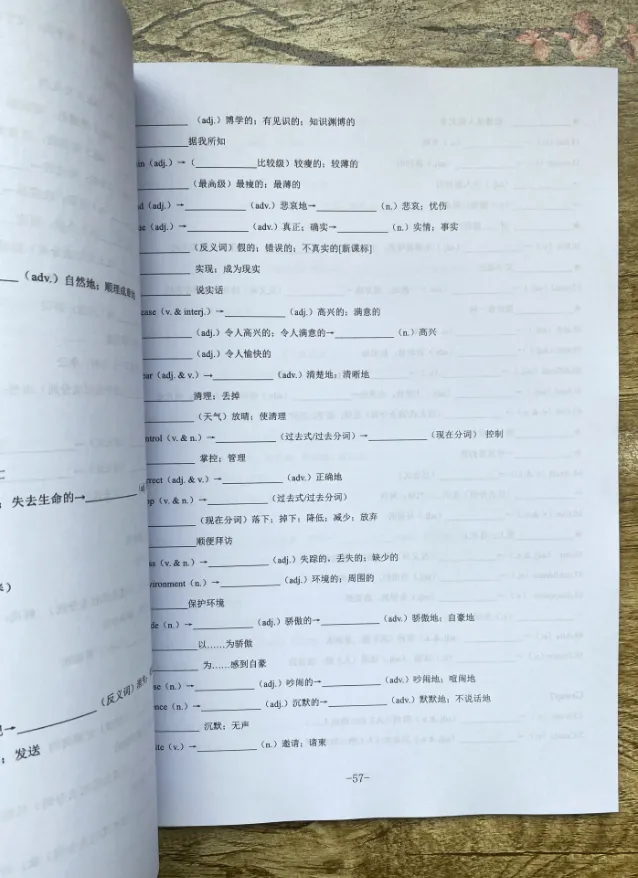 （adv.）自然地；顺理成章
失去生命的→____________
→____________（反义词）
：发送
____________（adj.）博学的；有见识的；知识渊博的
____________据我所知
in（adj.）→（____________比较级）较瘦的；较薄的
____________（最高级）最瘦的；最薄的
d（adj.）→____________（adv.）悲哀地→____________（n.）悲哀；忧伤
e（adj.）→____________（adv.）真正；确实→____________（n.）实情；事实
____________（反义词）假的；错误的；不真实的[新课标]
____________ 实现；成为现实
____________ 说实话
ease（v. & interj.）→____________（adj.）高兴的；满意的
____________（adj.）令人高兴的；令人满意的→____________（n.）高兴
____________（adj.）令人愉快的
ear（adj. & v.）→____________（adv.）清楚地；清晰地
____________清理；丢掉
____________（天气）放晴；使清理
ntrol（v. & n.）→____________（过去式/过去分词）→____________（现在分词） 控制
____________ 掌控；管理
rrect（adj. & v.）→____________（adv.）正确地
op（v. & n.）→____________（过去式/过去分词）
____________（现在分词）落下；掉下；降低；减少；放弃
____________顺便拜访
ss（v. & n.）→____________（adj.）失踪的、丢失的；缺少的
vironment（n.）→____________（adj.）环境的；周围的
____________保护环境
de（n.）→____________（adj.）骄傲的→____________（adv.）骄傲地；自豪地
____________以……为骄傲
____________ 为……感到自豪
se（n.）→____________（adj.）吵闹的→____________（adv.）吵闹地；喧闹地
ence（n.）→____________（adj.）沉默的→____________（adv.）默默地；不说话地
____________ 沉默；无声
ite（v.）→____________（n.）邀请；请柬
-57-